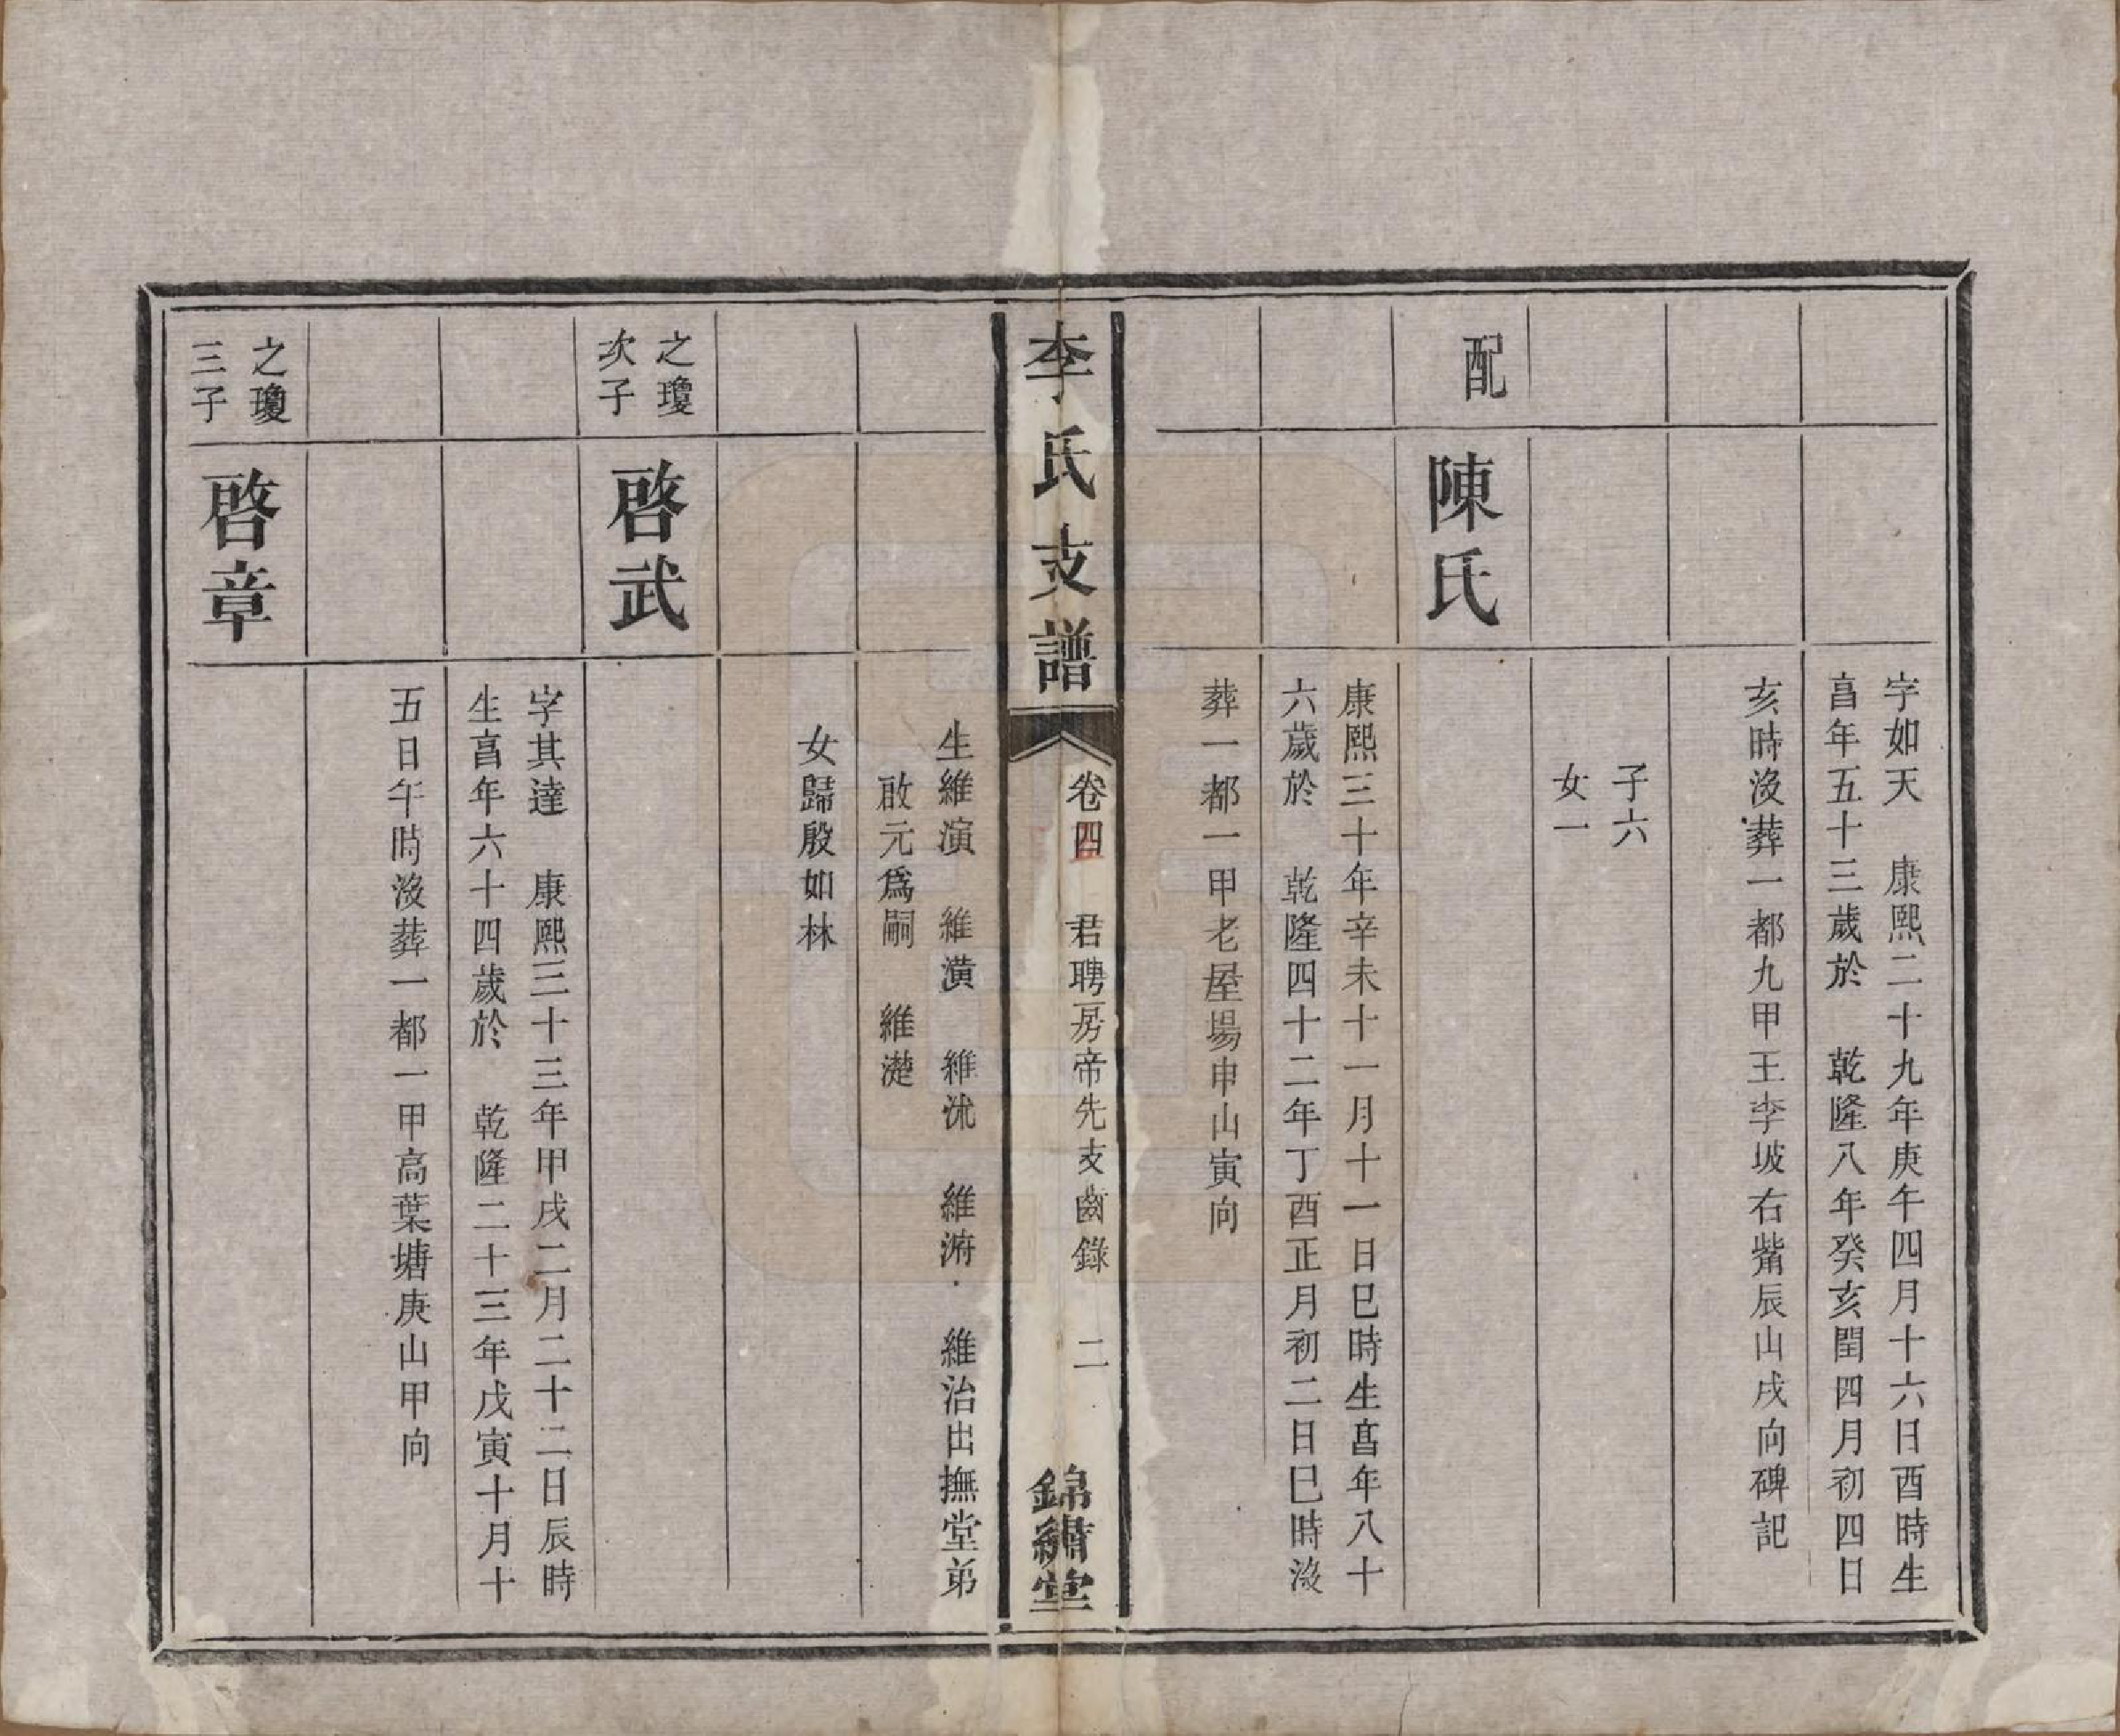 字如天　康熙二十九年庚午四月十六日酉時生生
亯年五十三歲於　乾隆八年癸亥閏四月初四日
亥時沒葬一都九甲王李坡右觜辰山戌向碑記
子六
女一
配
陳氏
康熙三十年辛未十一月十一日巳時生亯年八十
六歲於　乾隆四十二年丁酉正月初二日巳時沒
葬一都一甲老屋場申山寅向
李氏支譜
卷四　君聘房帝先支齒錄　二
錦繡堂
生維演　維潢　維沭　維㳖　維治出撫堂弟
啟元爲嗣　維濋
女歸殷如林
之瓊
次子
啓武
字其達　康熙三十三年甲戌二月二十二日辰時
生亯年六十四歲於　乾隆二十三年戊寅十月十
五日午時沒葬一都一甲高葉塘庚山甲向
之瓊
三子
啓章